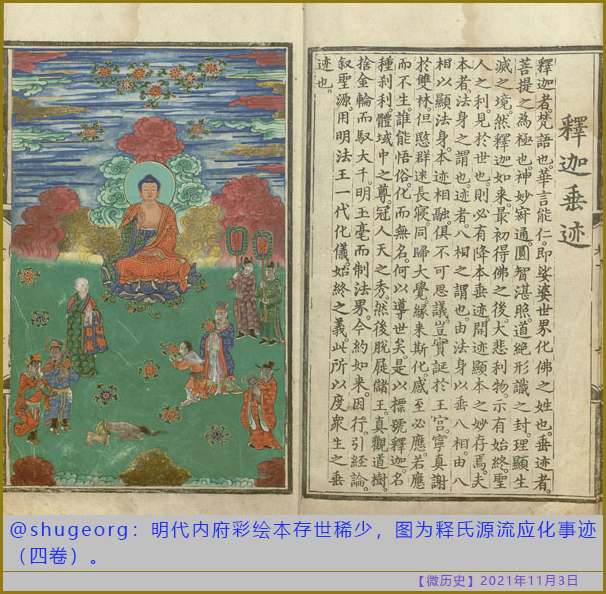 釋迦垂迹
釋迦者。梵語也。華言能仁。即娑婆世界化佛之姓也。垂迹者。
菩提之為極也。神妙寂通。圓智湛照。道絕形識之封。理顯生
滅之境。然釋迦如來。最初得佛之後。大悲利物。示有始終。聖
人之利。見於世也。則必有降本垂迹。開迹顯本之妙存焉。夫
本者。法身之謂也。迹者。八相之謂也。由法身以垂八相。由八
相以顯法身。本迹相融。俱不可思議。豈實誕於王宮。寧真謝
於雙林。但愍群迷長寢。同歸大覺。緣來斯化。感至必應。若應
而不生。誰能悟俗。化而無名。何以導世矣。是以標號釋迦。名
種刹利。體域中之尊。冠人天之秀。然後脫屣儲王。真觀道樹。
捨金輪而馭大千。明玉毫而制法界。今約如來。因行引經論。
叙聖源。用明法王一代化儀。始終之義。此所以度衆生之垂
迹也。
@shugeorg：明代内府彩绘本存世稀少，图为释氏源流应化事迹
（四卷）。
【微历史】2021年11月3日